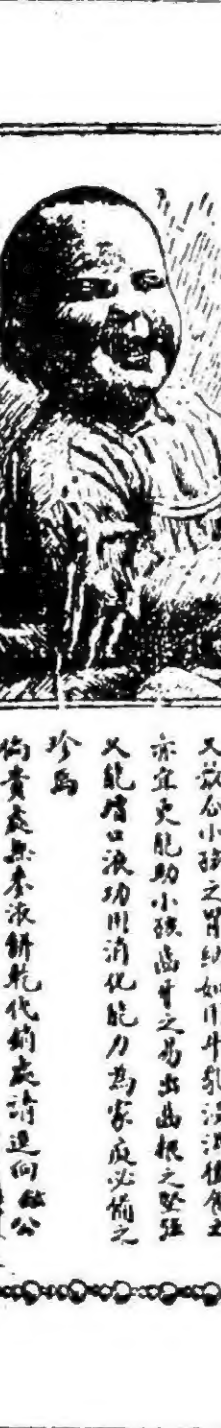 又敵合小孩之胃納如用牛乳浸濕植食之
亦宜更能助小孩齒牙之易出齒根之堅强
又能增口液功用消化能力為家庭必備之
珍品
倘貴處無麥液餅乾代銷處請逕向敝公